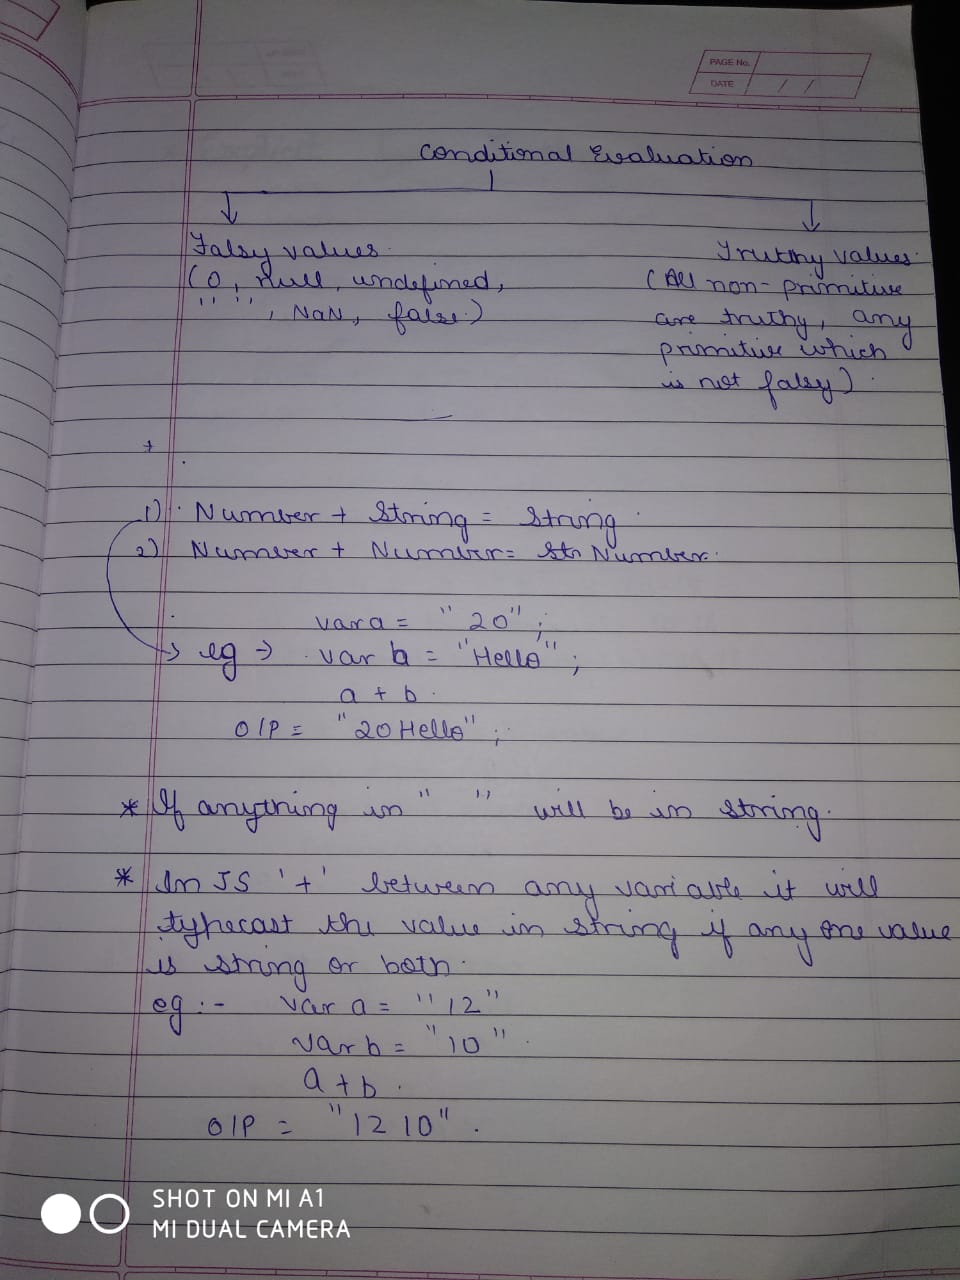 PAGE No.
DATE / /
Conditional Evaluation
Falsy values
(0, null, undefined,
" ", NaN, false)
Truthy values
(All non-primitive
are truthy, any
primitive which
is not falsy).
+
1) Number + String = String
2) Number + Number = Number.
var a = "20";
eg → var b = "Hello";
a + b.
O/P = "20Hello";
* If anything in " " will be in string.
* In JS '+' between any variable it will
typecast the value in string if any one value
is string or both.
eg :- var a = "12"
var b = "10".
a + b.
O/P = "1210".
SHOT ON MI A1
MI DUAL CAMERA